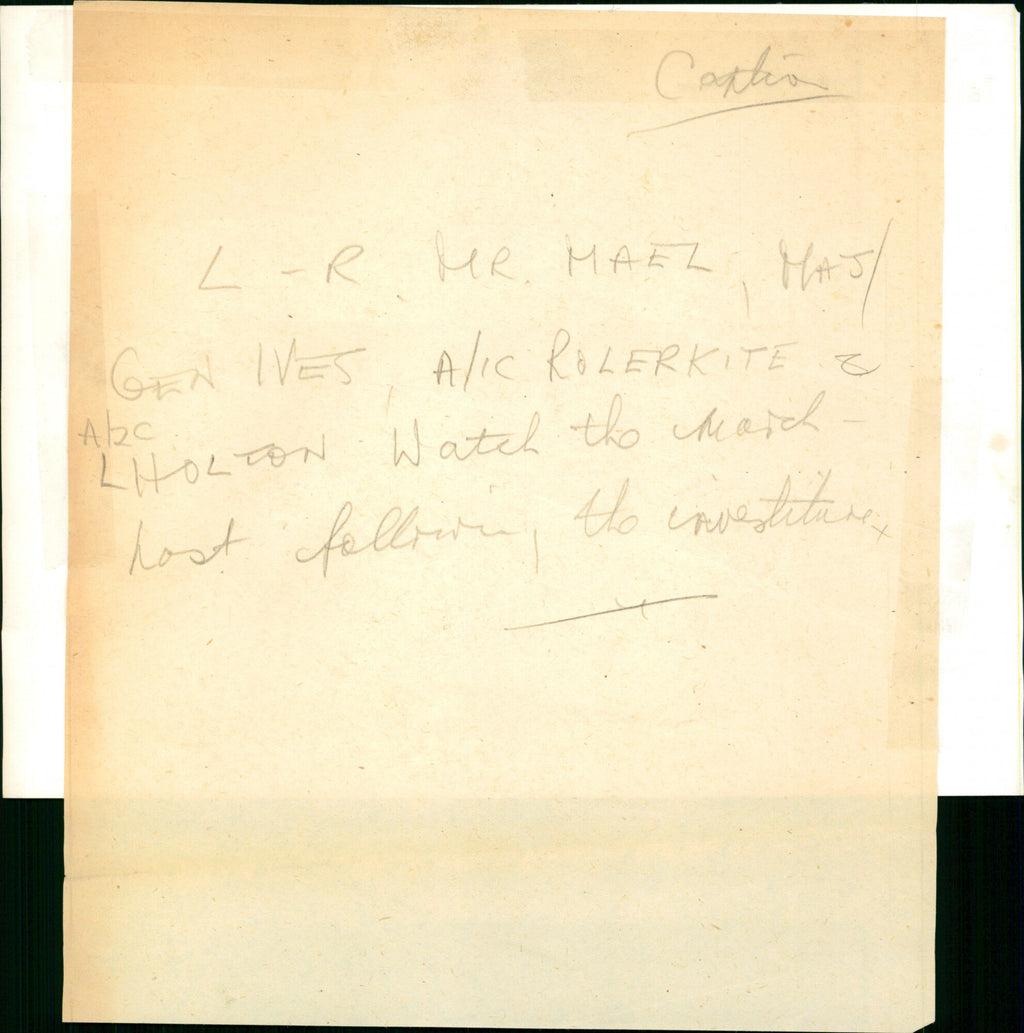 Caption
L - R. MR. MAEL, MAJ/
GEN IVES, A/1C ROLERKITE &
A/2C
L HOLTON Watch the march-
past following the investiture